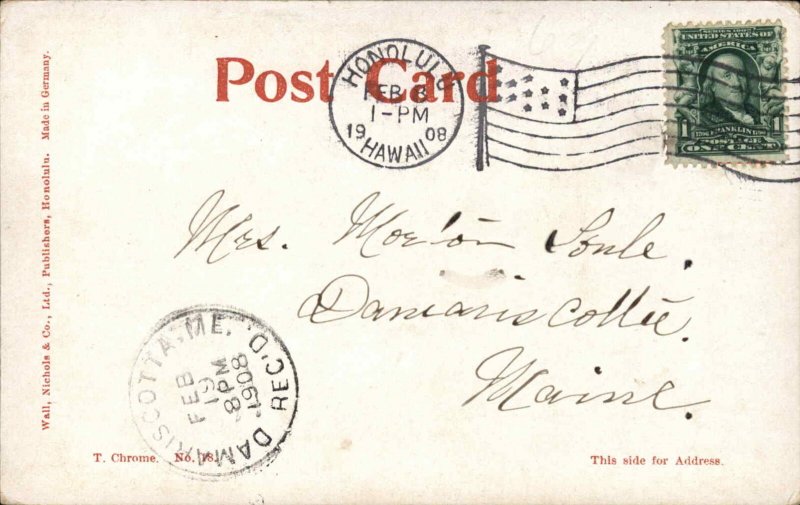 Post Card
HONOLULU
FEB 8
1-PM
1908
HAWAII
SERIES 1902
UNITED STATES OF
AMERICA
1 FRANKLIN 1
POSTAGE
ONE CENT
Mrs. Morton Soule.
Damariscottie.
Maine.
DAMARISCOTTA, ME.
FEB
19
8 PM
1908
REC'D.
Wall, Nichols & Co., Ltd., Publishers, Honolulu. Made in Germany.
T. Chrome. No. 18.
This side for Address.